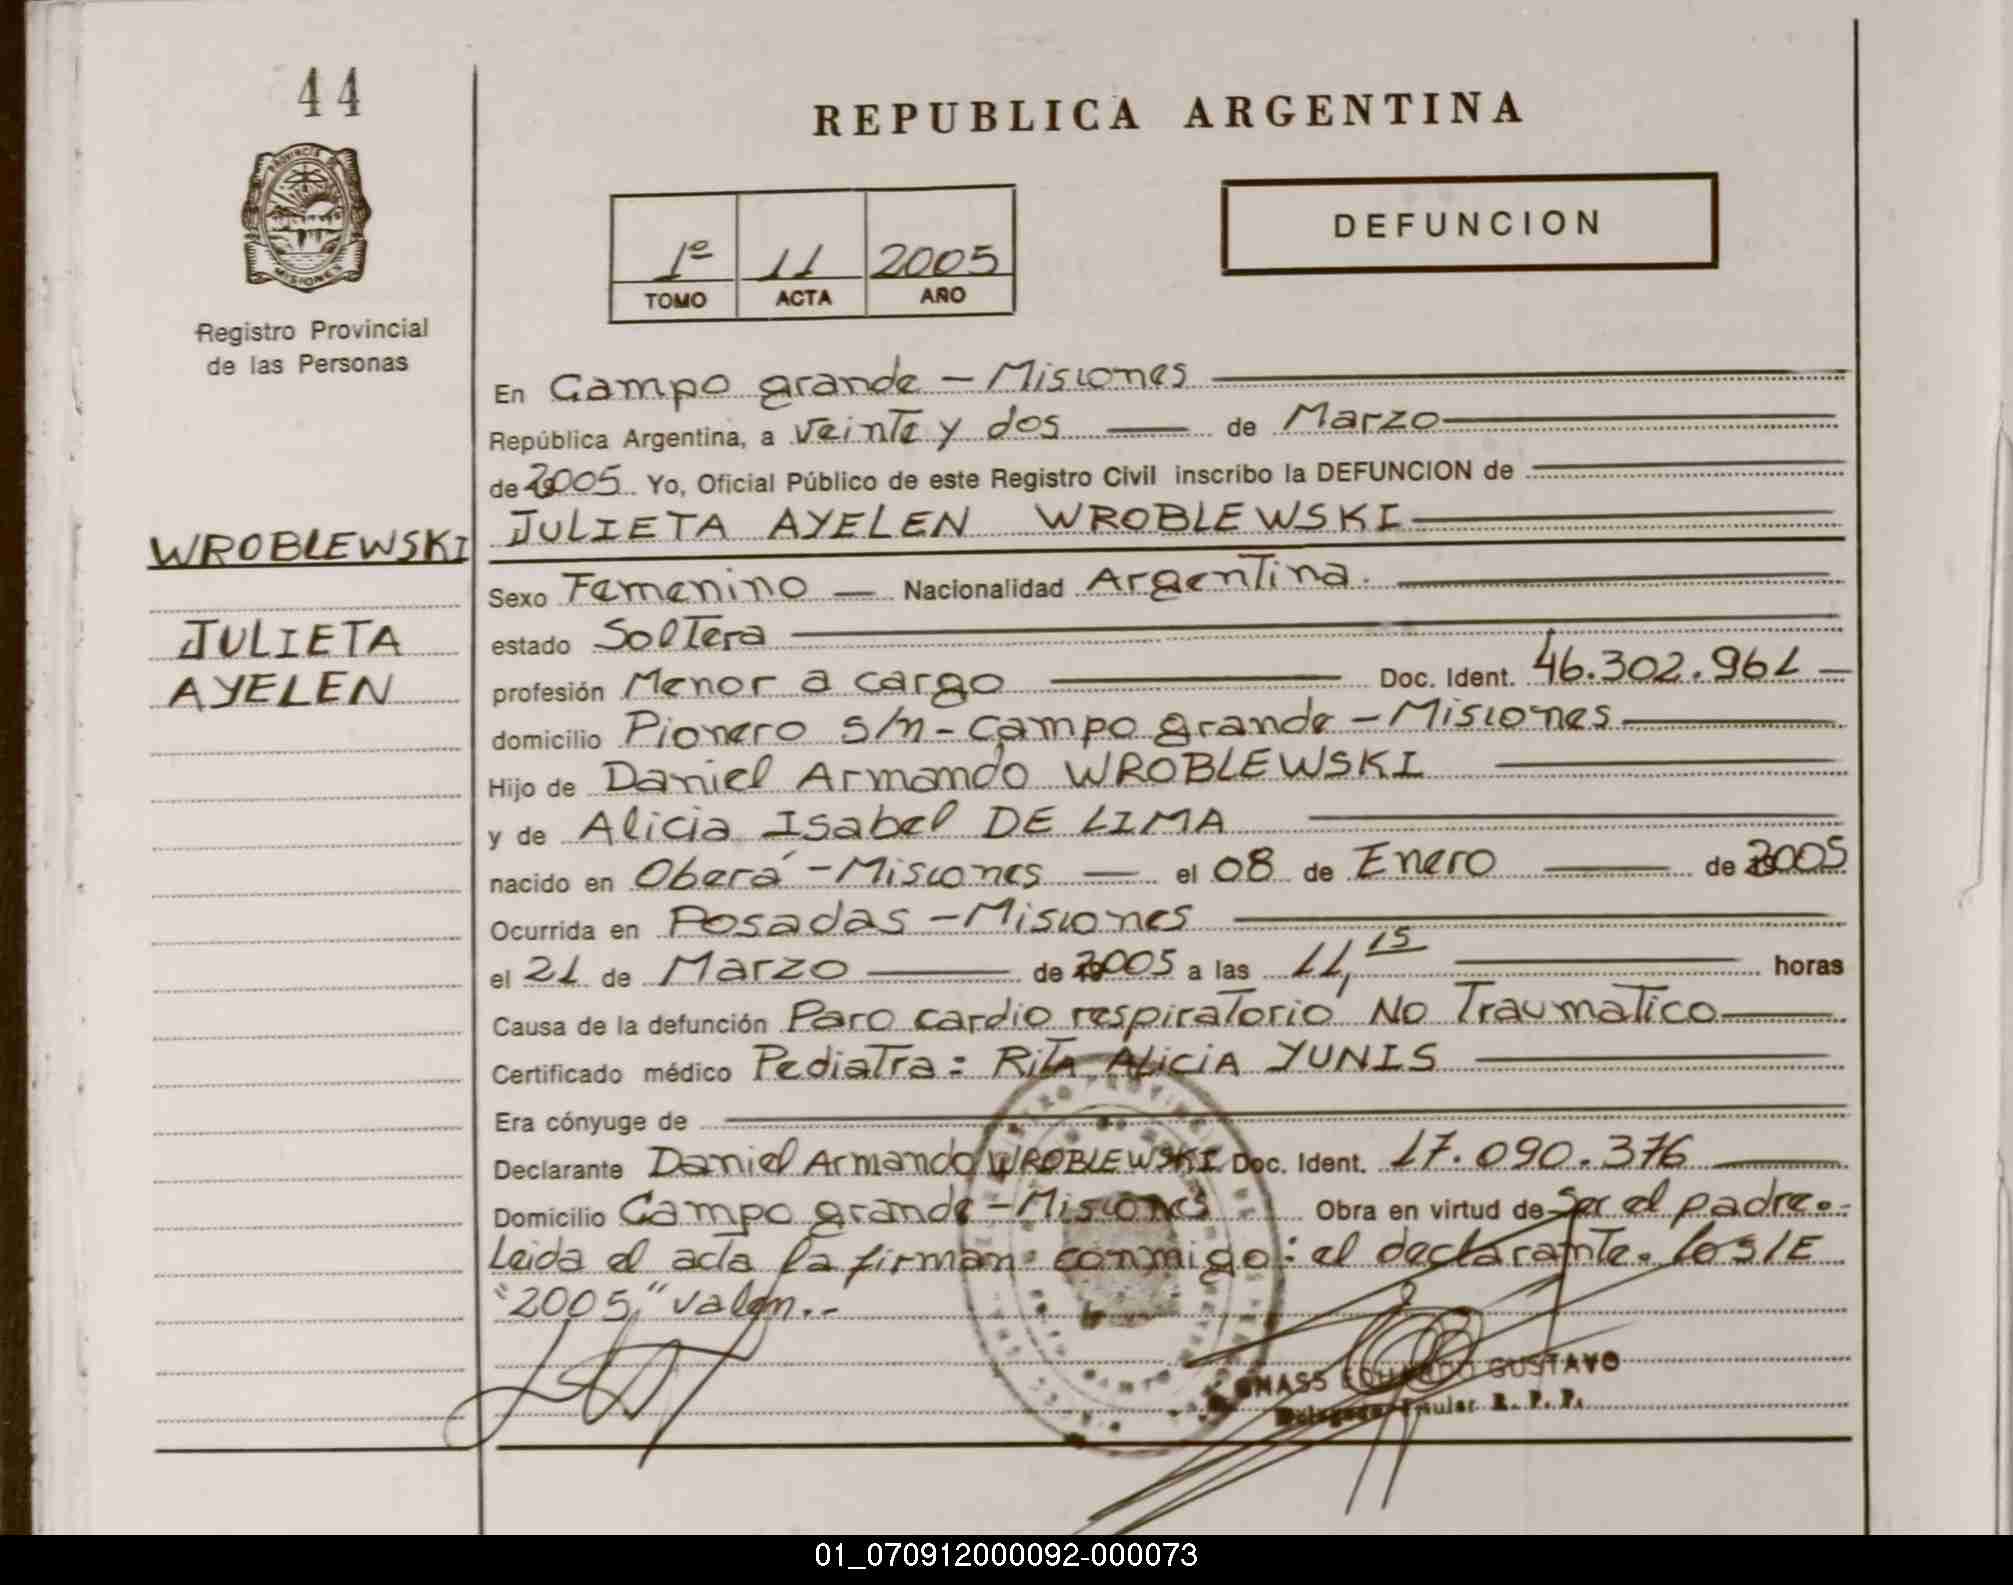 44
REPUBLICA ARGENTINA
PROVINCIA DE
MISIONES
Registro Provincial
de las Personas
1º 11 2005
TOMO ACTA AÑO
DEFUNCION
En Campo grande - Misiones
República Argentina, a veinte y dos de Marzo
de 2005 Yo, Oficial Público de este Registro Civil inscribo la DEFUNCION de
WROBLEWSKI
JULIETA
AYELEN
JULIETA AYELEN WROBLEWSKI
Sexo Femenino — Nacionalidad Argentina.
estado Soltera
profesión Menor a cargo Doc. Ident. 46.302.961
domicilio Pionero s/n - Campo grande - Misiones
Hijo de Daniel Armando WROBLEWSKI
y de Alicia Isabel DE LIMA
nacido en Oberá - Misiones el 08 de Enero de 2005
Ocurrida en Posadas - Misiones
el 21 de Marzo de 2005 a las 11,15 horas
Causa de la defunción Paro cardio respiratorio No Traumatico
Certificado médico Pediatra: Rita Alicia YUNIS
Era cónyuge de
Declarante Daniel Armando WROBLEWSKI Doc. Ident. 17.090.376
Domicilio Campo grande - Misiones Obra en virtud de Ser el padre.-
Leida el acta la firman conmigo: el declarante. los/E
"2005," valen.-
GUSTAVO
Titular R. P. P.
01_070912000092-000073